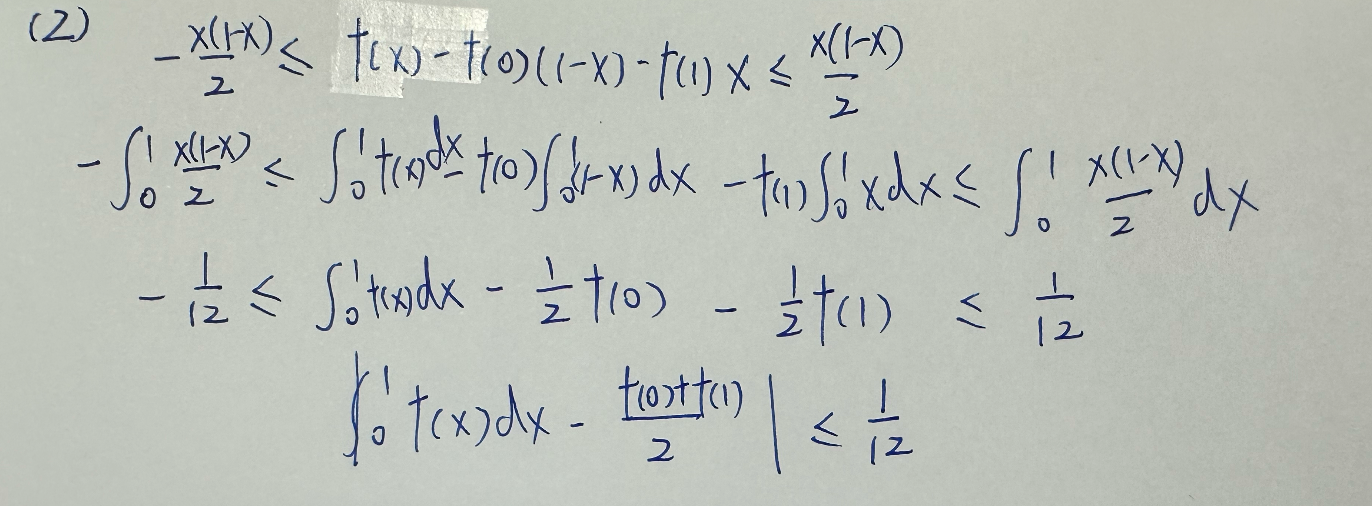 (2) -x(1-x)/2 ≤ f(x) - f(0)(1-x) - f(1)x ≤ x(1-x)/2
-∫₀¹ x(1-x)/2 ≤ ∫₀¹ f(x)dx - f(0)∫₀¹(1-x)dx - f(1)∫₀¹ xdx ≤ ∫₀¹ x(1-x)/2 dx
-1/12 ≤ ∫₀¹ f(x)dx - 1/2 f(0) - 1/2 f(1) ≤ 1/12
|∫₀¹ f(x)dx - (f(0)+f(1))/2| ≤ 1/12